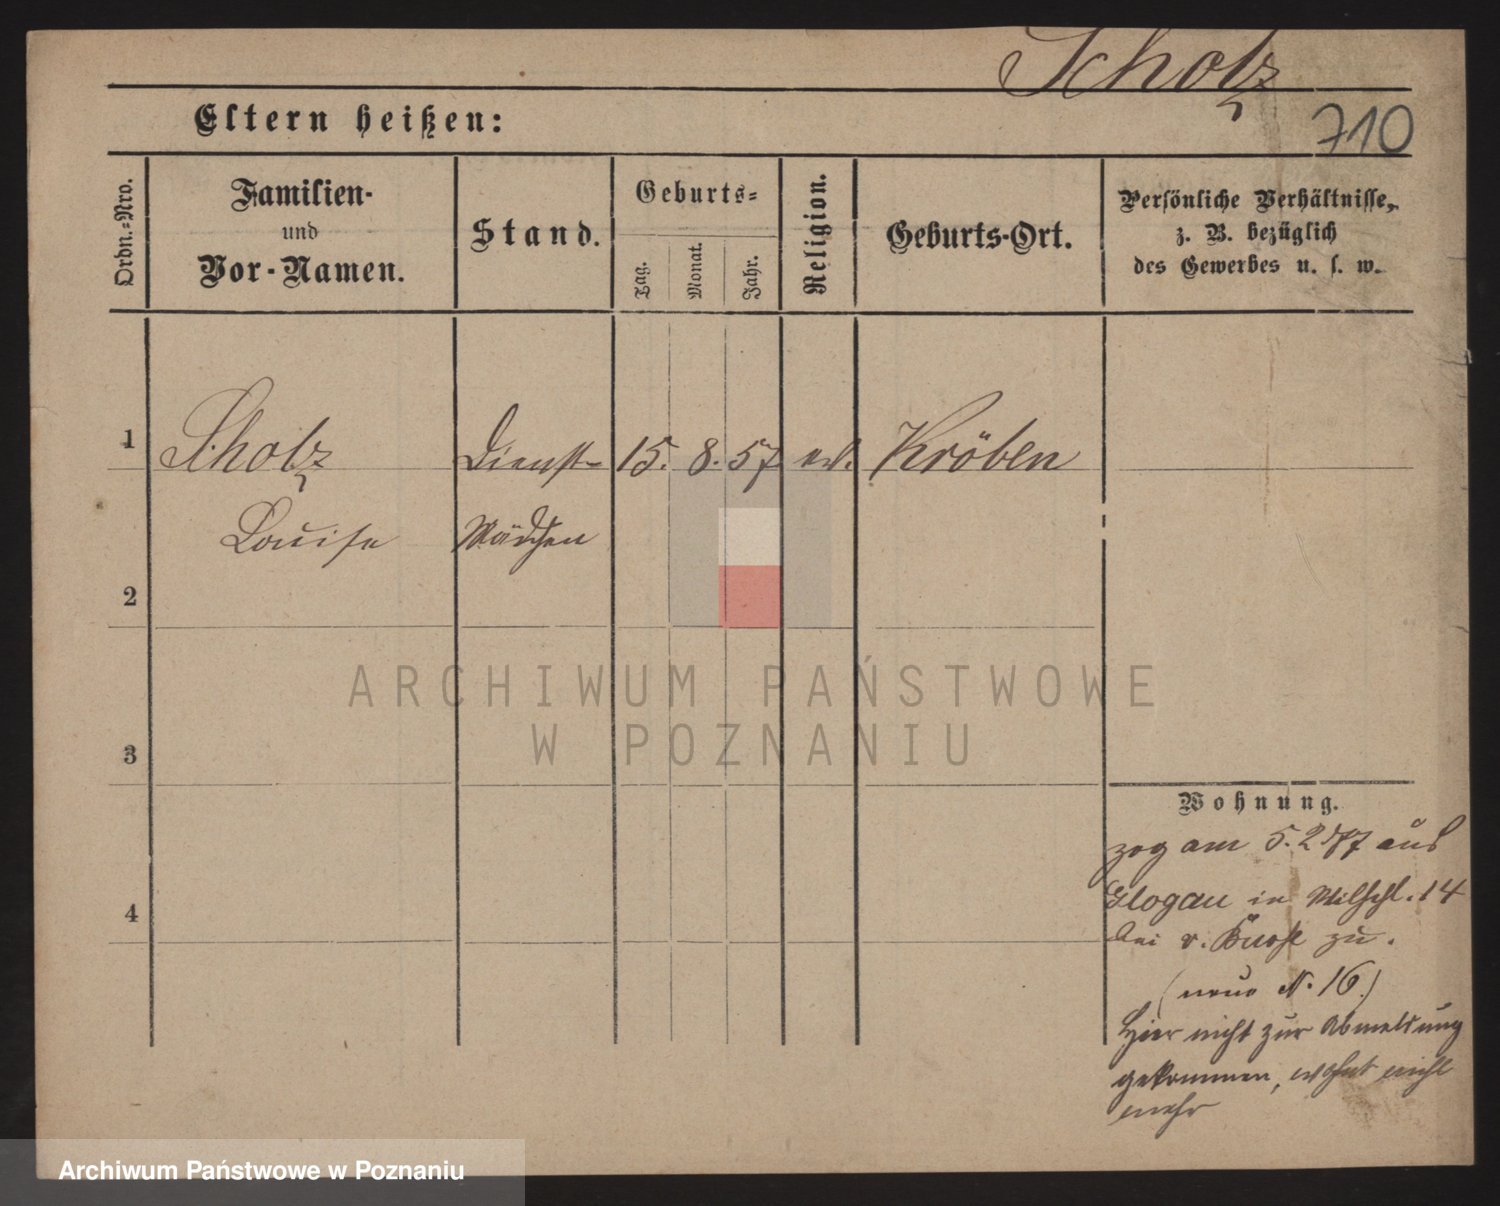 Scholz
710
Eltern heißen:
Ordn.-Nro.
Familien-
und
Vor-Namen.
Stand.
Geburts-
Tag.
Monat.
Jahr.
Religion.
Geburts-Ort.
Persönliche Verhältnisse,
z. B. bezüglich
des Gewerbes u. s. w.
1 Scholz Dienst- 15. 8. 57 ev. Kröben
Louise Mädchen
2
3
4
Wohnung.
zog am 5. 2 87 aus
Glogau in Wilhshl. 14
bei v. zu.
(neue N. 16.)
Hier nicht zur Abmeldung
gekommen, wohnt nicht
mehr
ARCHIWUM PAŃSTWOWE
W POZNANIU
Archiwum Państwowe w Poznaniu